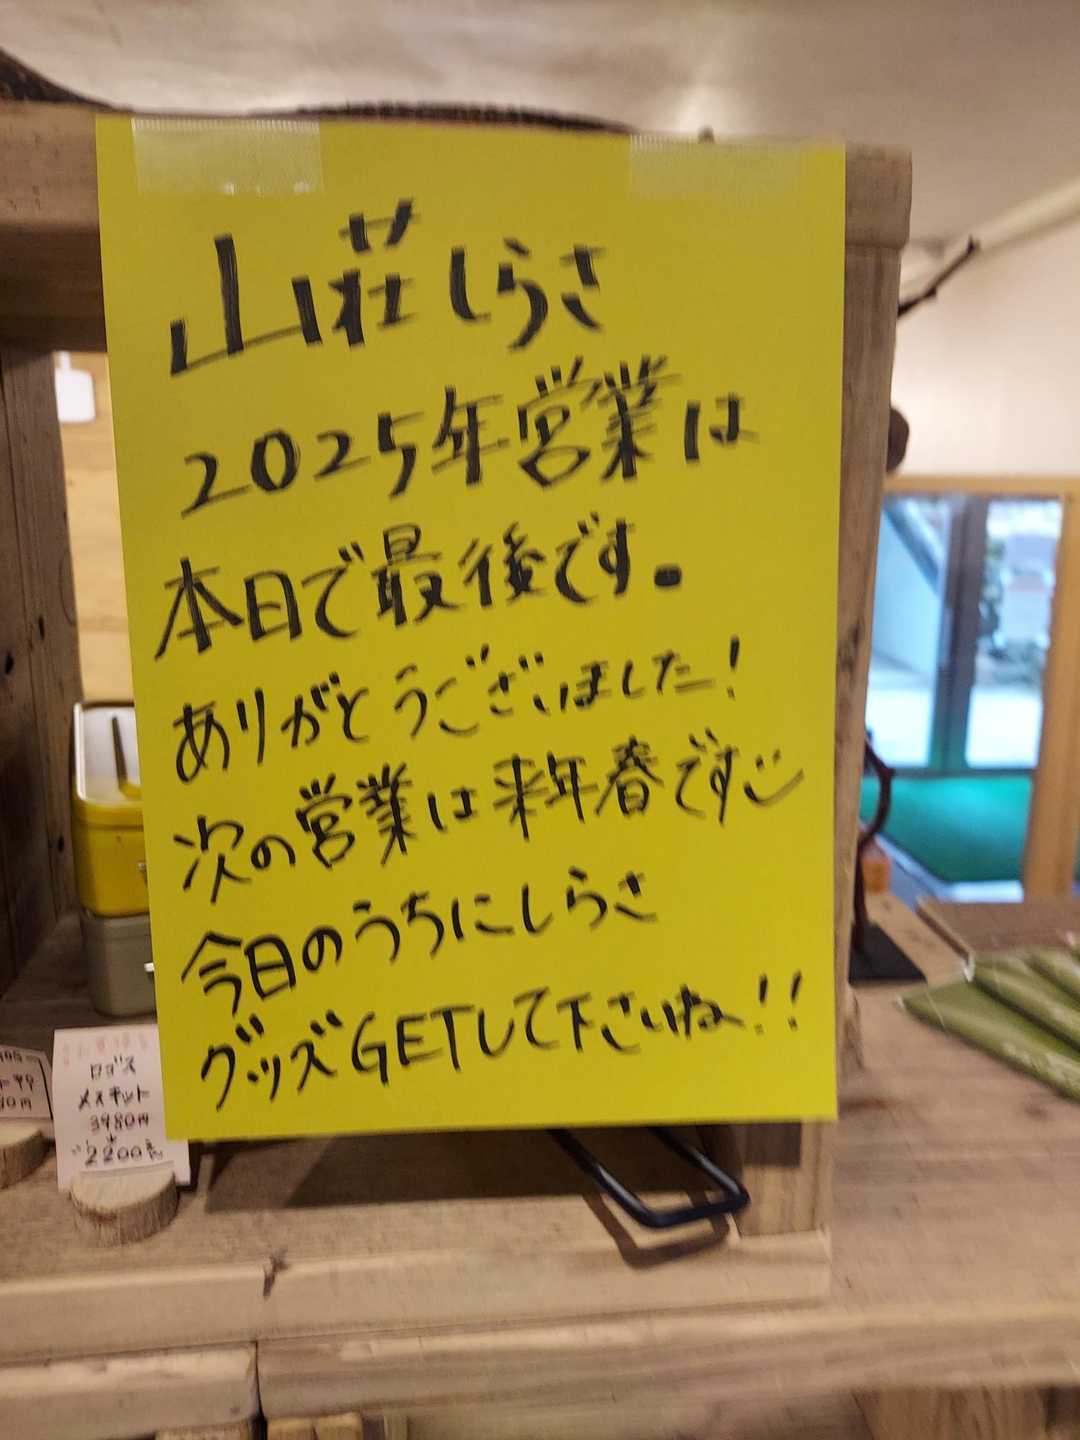 山荘しらさ
2025年営業は
本日で最後です。
ありがとうございました!
次の営業は来年春です
今日のうちにしらさ
グッズGETして下さいね!!
ロゴス
メスキット
3980円
2200